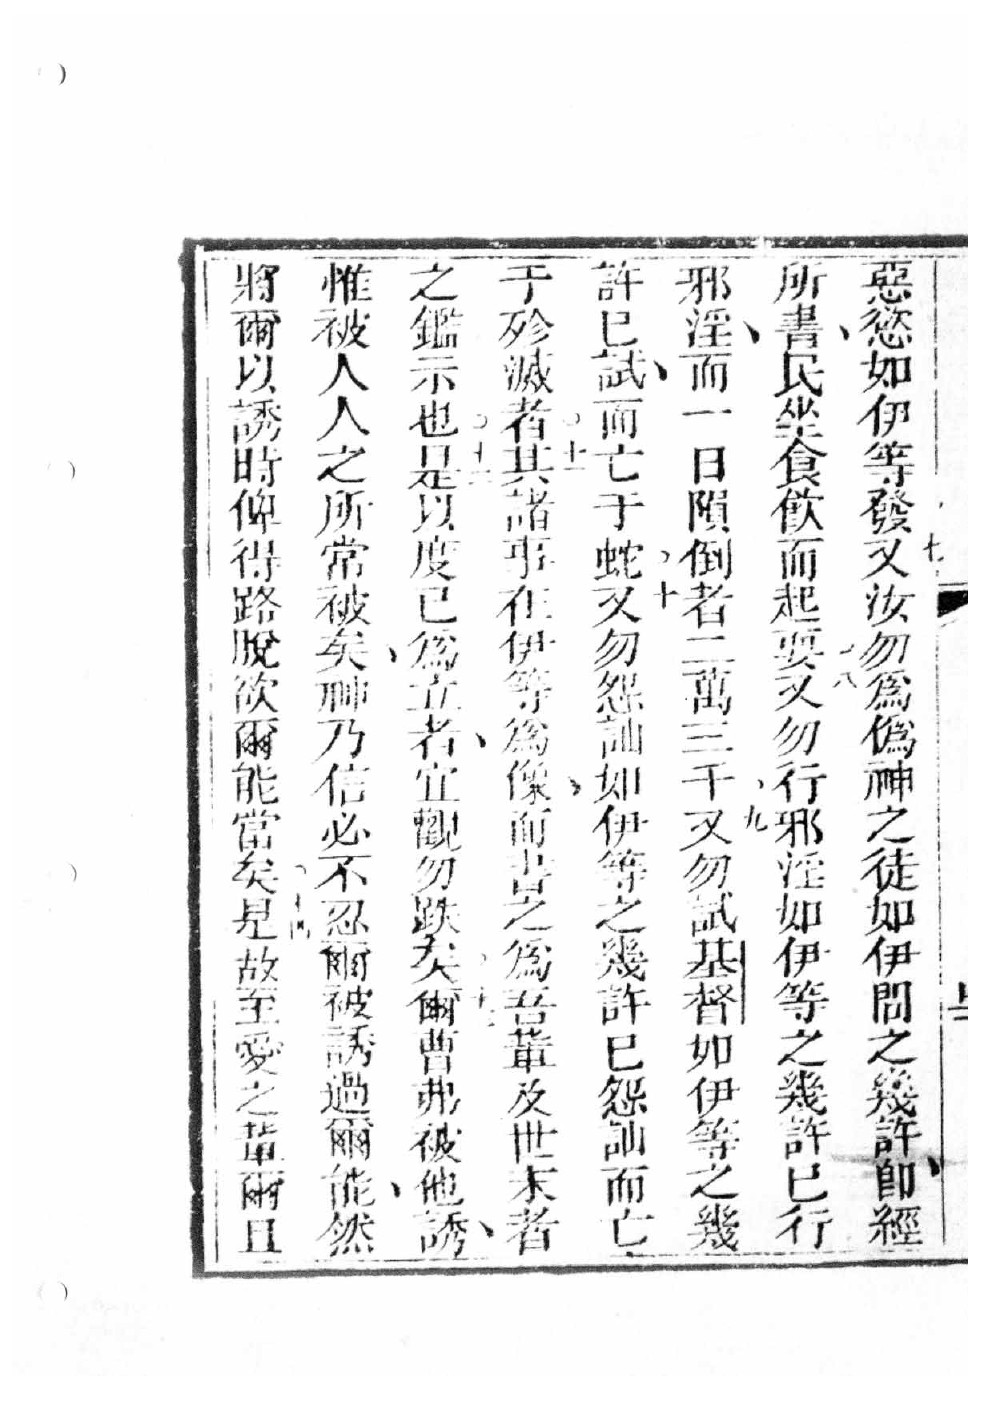 惡慾如伊等發又汝勿爲僞神之徒如伊間之幾許卽經
七
所書民坐食飲而起耍又勿行邪淫如伊等之幾許已行
八
邪淫而一日隕倒者二萬三千又勿試基督如伊等之幾
九
許已試而亡于蛇又勿怨訕如伊等之幾許已怨訕而亡
十
于殄滅者其諸事在伊等爲像而書之爲吾輩及世末者
十一
之鑑示也是以度已爲立者宜觀勿跌矣爾曹弗被他誘
十二
惟被人人之所常被矣神乃信必不忍爾被誘過爾能然
將爾以誘時俾得路脫欲爾能當矣是故至愛之輩爾且
十四